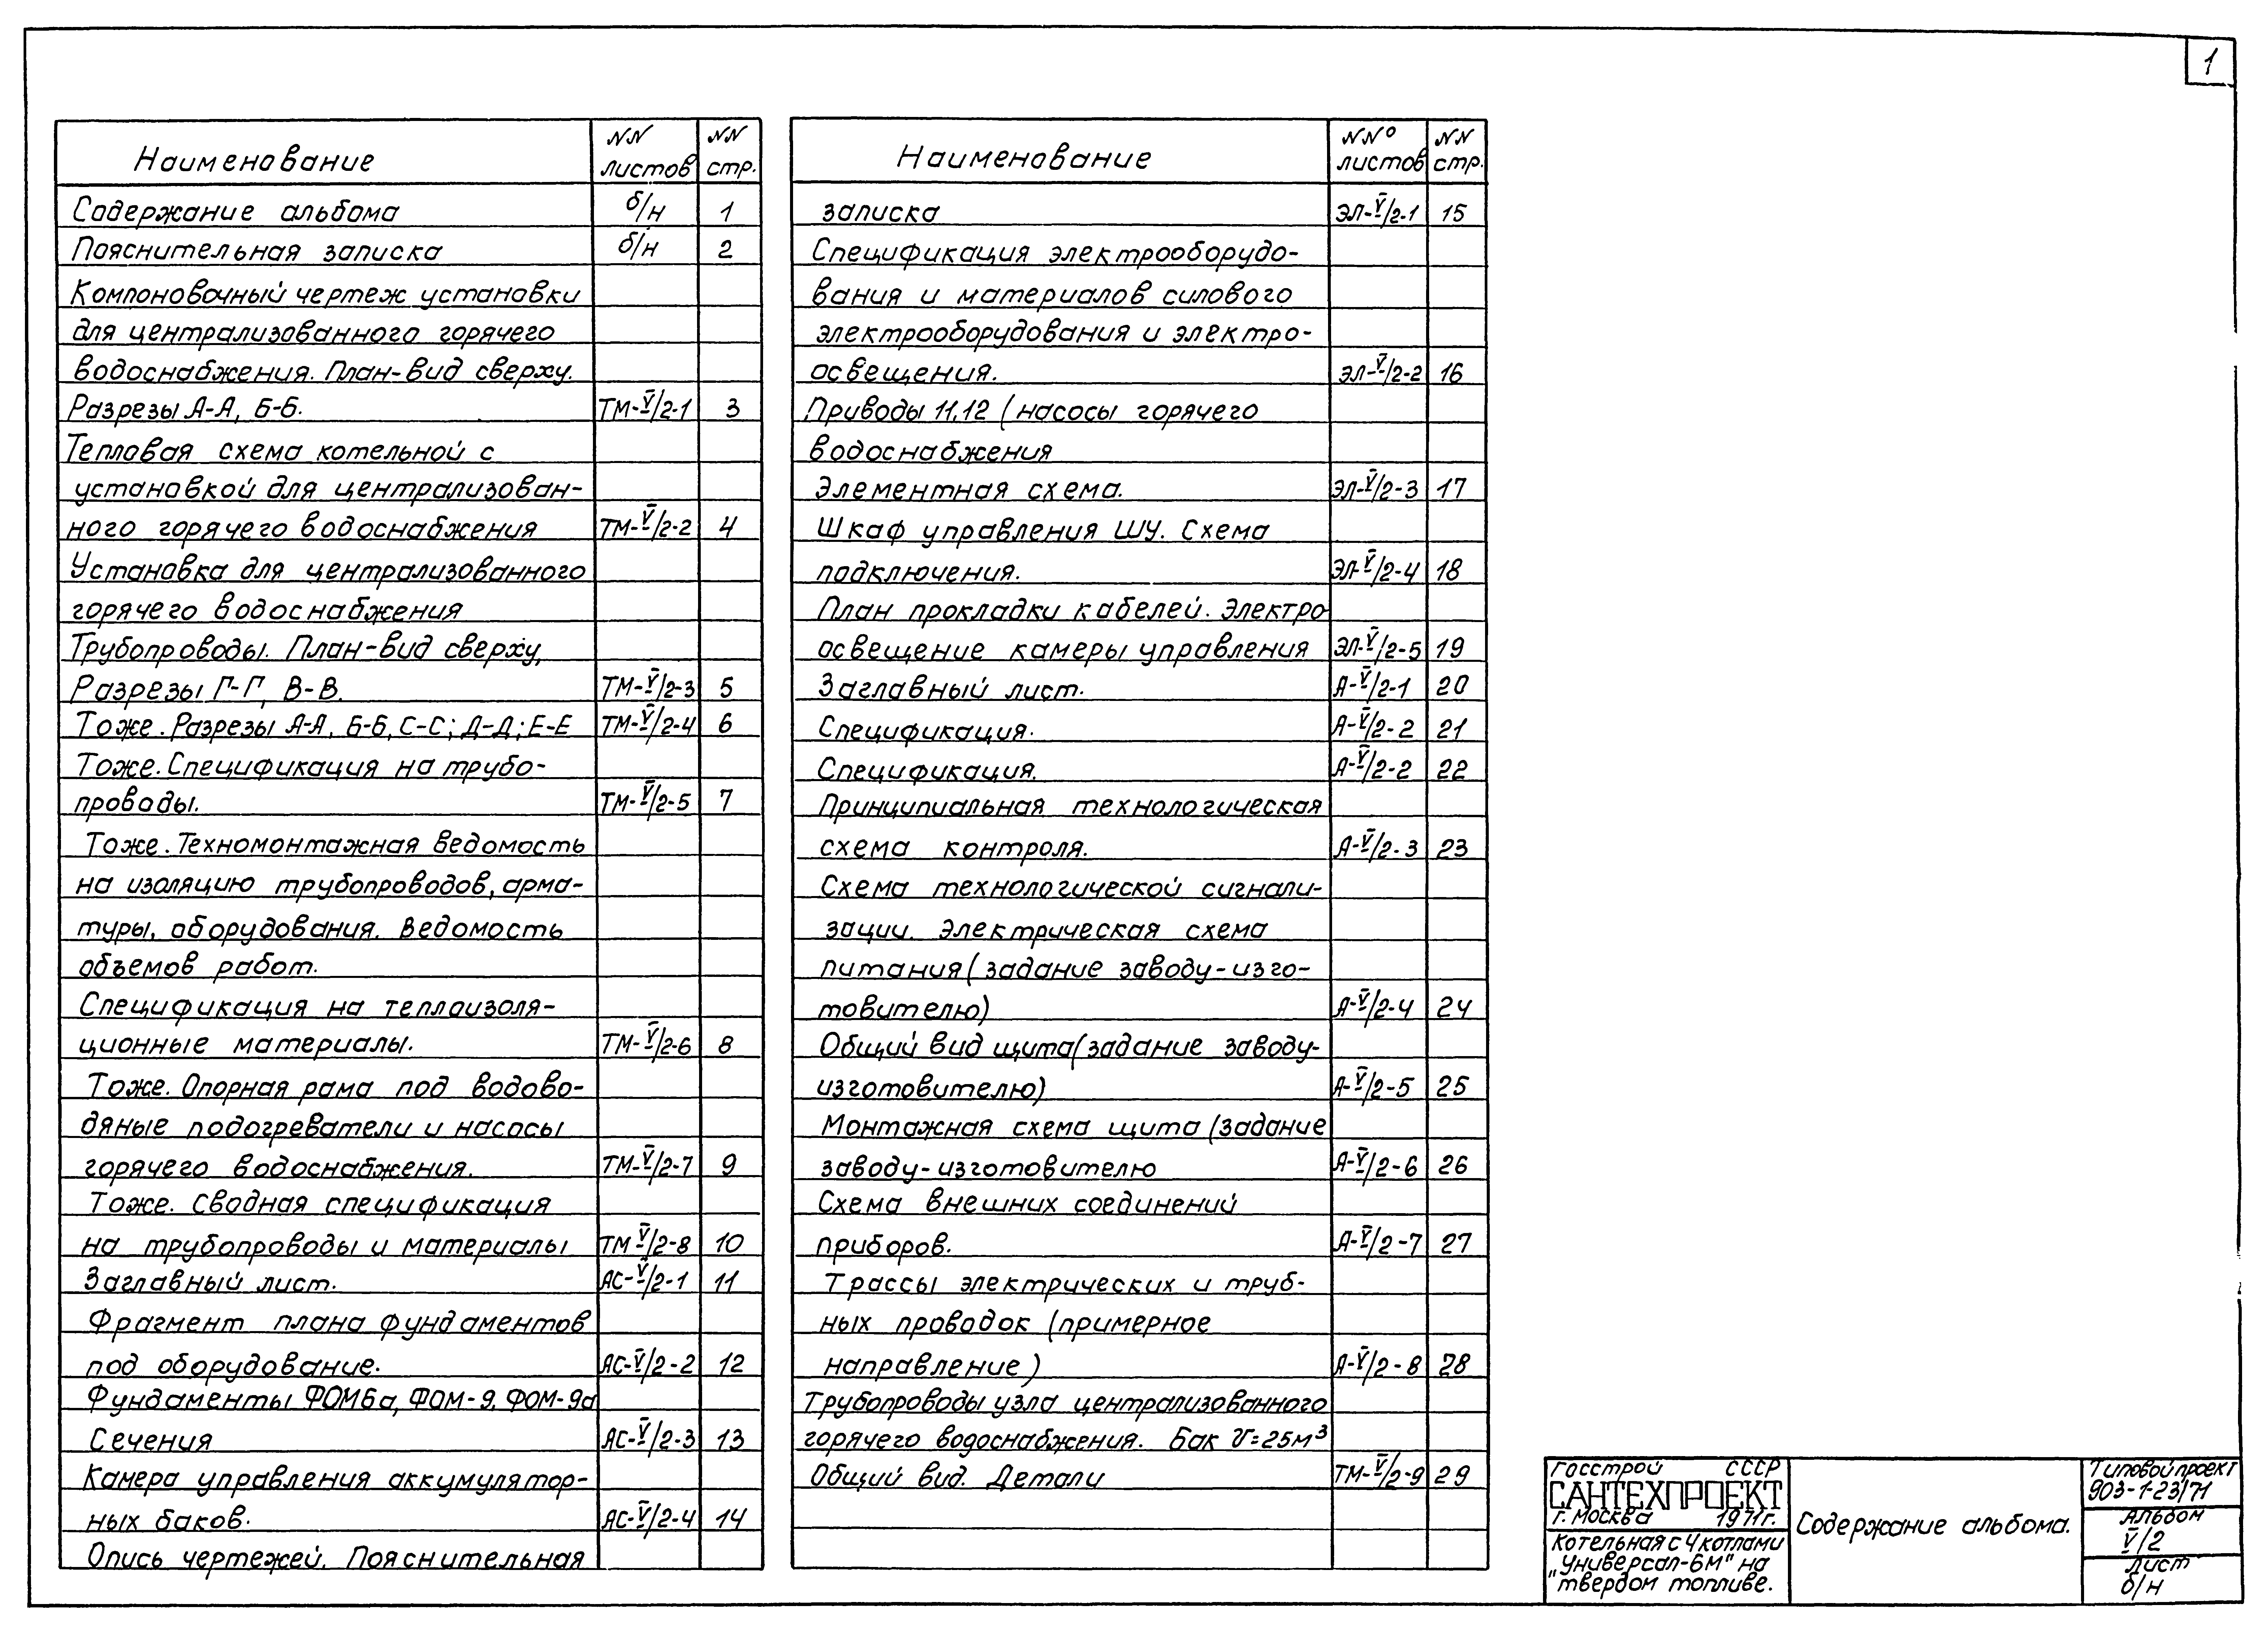 1
Наименование NN листов NN стр.
Содержание альбома б/н 1
Пояснительная записка б/н 2
Компоновочный чертеж установки
для централизованного горячего
водоснабжения. План-вид сверху.
Разрезы А-А, Б-Б. ТМ-V/2-1 3
Тепловая схема котельной с
установкой для централизован-
ного горячего водоснабжения ТМ-V/2-2 4
Установка для централизованного
горячего водоснабжения
Трубопроводы. План-вид сверху,
Разрезы Г-Г, В-В. ТМ-V/2-3 5
Тоже. Разрезы А-А, Б-Б, С-С; Д-Д; Е-Е ТМ-V/2-4 6
Тоже. Спецификация на трубо-
проводы. ТМ-V/2-5 7
Тоже. Техномонтажная ведомость
на изоляцию трубопроводов, арма-
туры, оборудования. Ведомость
объемов работ.
Спецификация на теплоизоля-
ционные материалы. ТМ-V/2-6 8
Тоже. Опорная рама под водово-
дяные подогреватели и насосы
горячего водоснабжения. ТМ-V/2-7 9
Тоже. Сводная спецификация
на трубопроводы и материалы ТМ V/2-8 10
Заглавный лист. АС-V/2-1 11
Фрагмент плана фундаментов
под оборудование. АС-V/2-2 12
Фундаменты ФОМ6а, ФОМ-9, ФОМ-9а
Сечения АС-V/2-3 13
Камера управления аккумулятор-
ных баков. АС-V/2-4 14
Опись чертежей. Пояснительная
Наименование NN° листов NN стр.
записка ЭЛ-V/2-1 15
Спецификация электрооборудо-
вания и материалов силового
электрооборудования и электро-
освещения. ЭЛ-V/2-2 16
Приводы 11,12 (насосы горячего
водоснабжения
Элементная схема. ЭЛ-V/2-3 17
Шкаф управления ШУ. Схема
подключения. ЭЛ-V/2-4 18
План прокладки кабелей. Электро
освещение камеры управления ЭЛ-V/2-5 19
Заглавный лист. А-V/2-1 20
Спецификация. А-V/2-2 21
Спецификация. А-V/2-2 22
Принципиальная технологическая
схема контроля. А-V/2-3 23
Схема технологической сигнали-
зации. Электрическая схема
питания (задание заводу-изго-
товителю) А-V/2-4 24
Общий вид щита (задание заводу-
изготовителю) А-V/2-5 25
Монтажная схема щита (задание
заводу-изготовителю А-V/2-6 26
Схема внешних соединений
приборов. А-V/2-7 27
Трассы электрических и труб-
ных проводок (примерное
направление) А-V/2-8 28
Трубопроводы узла централизованного
горячего водоснабжения. Бак V=25м³
Общий вид. Детали ТМ-V/2-9 29
Госстрой СССР
САНТЕХПРОЕКТ
г. Москва 1971г.
Котельная с 4 котлами
"Универсал-6М" на
твердом топливе.
Содержание альбома.
Типовой проект
903-1-23/71
Альбом
V/2
Лист
б/н